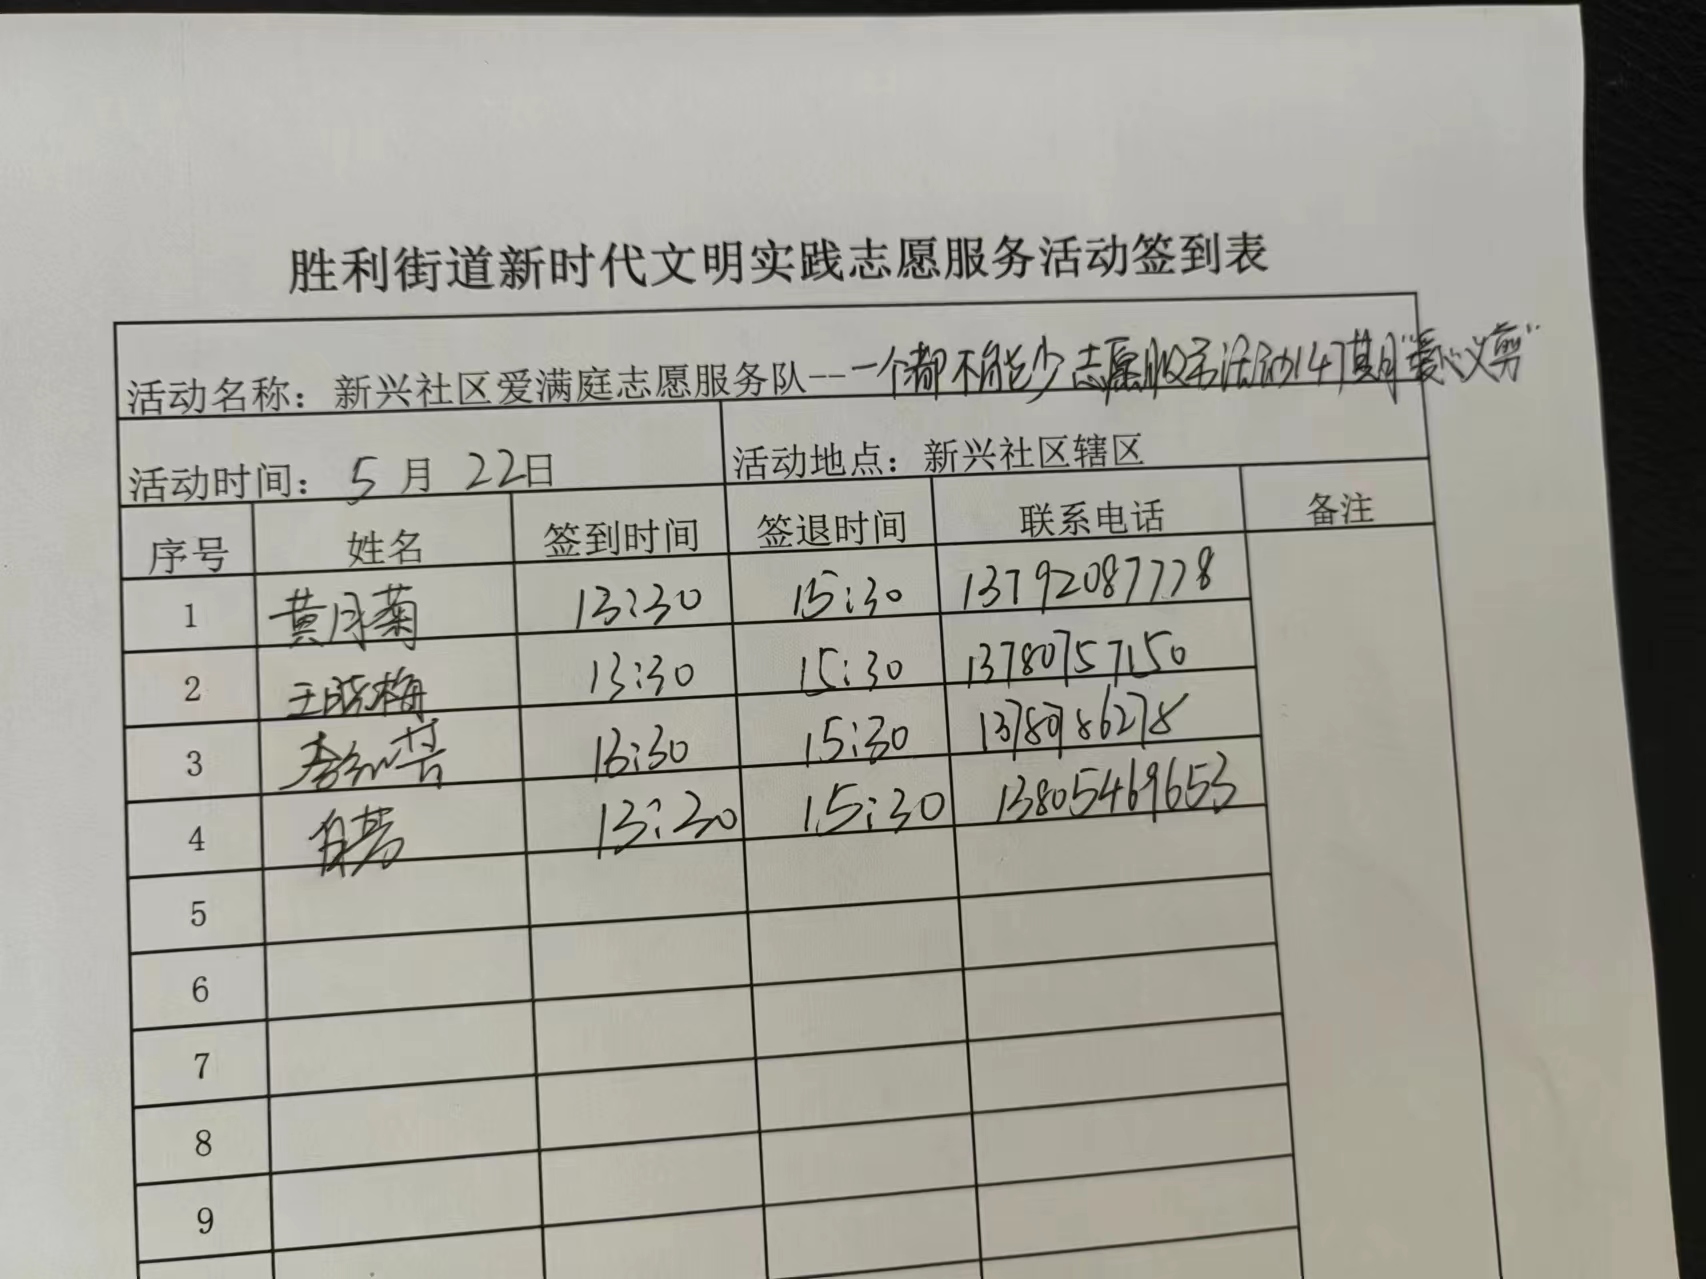 胜利街道新时代文明实践志愿服务活动签到表
活动名称：新兴社区爱满庭志愿服务队---一个都不能少志愿服务活动147期“爱心义剪”
活动时间：5月22日 活动地点：新兴社区辖区
序号 姓名 签到时间 签退时间 联系电话 备注
1 黄月菊 13:30 15:30 13792087778
2 王晓梅 13:30 15:30 13780757150
3 13:30 15:30 13780786278
4 13:30 15:30 13805469653
5
6
7
8
9